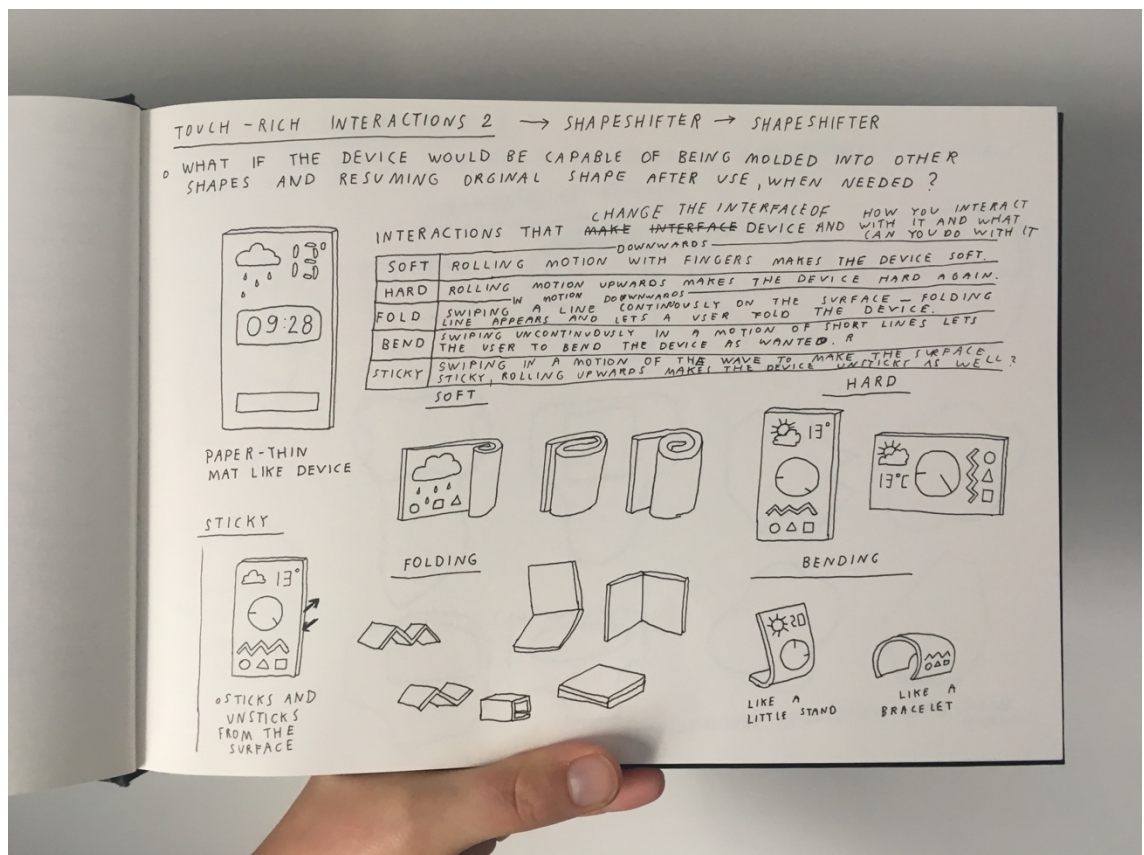 TOUCH-RICH INTERACTIONS 2 → SHAPESHIFTER → SHAPESHIFTER
o WHAT IF THE DEVICE WOULD BE CAPABLE OF BEING MOLDED INTO OTHER
SHAPES AND RESUMING ORGINAL SHAPE AFTER USE, WHEN NEEDED?
CHANGE THE INTERFACE OF
INTERACTIONS THAT MAKE INTERFACE DEVICE AND
HOW YOU INTERACT
WITH IT AND WHAT
CAN YOU DO WITH IT
DOWNWARDS
SOFT ROLLING MOTION WITH FINGERS MAKES THE DEVICE SOFT.
HARD ROLLING MOTION UPWARDS MAKES THE DEVICE HARD AGAIN.
IN MOTION DOWNWARDS
FOLD SWIPING A LINE CONTINOUSLY ON THE SURFACE — FOLDING
LINE APPEARS AND LETS A USER FOLD THE DEVICE.
BEND SWIPING UNCONTINUOUSLY IN A MOTION OF SHORT LINES LETS
THE USER TO BEND THE DEVICE AS WANTED. R
STICKY SWIPING IN A MOTION OF THE WAVE TO MAKE THE SURFACE
STICKY, ROLLING UPWARDS MAKES THE DEVICE UNSTICKS AS WELL?
13°
09:28
PAPER-THIN
MAT LIKE DEVICE
SOFT
HARD
13°
13°C
STICKY
13°
oSTICKS AND
UNSTICKS
FROM THE
SURFACE
FOLDING
BENDING
20
LIKE A
LITTLE STAND
LIKE A
BRACELET